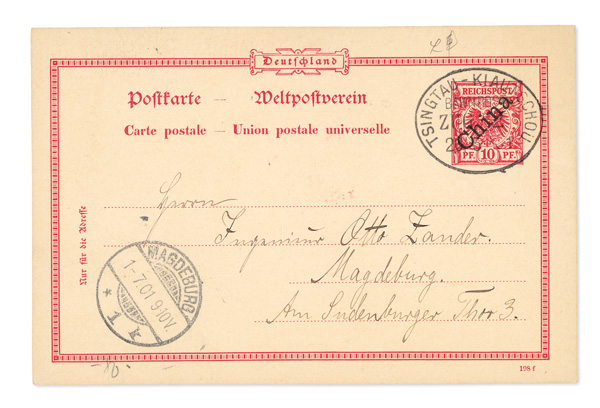 Deutschland
Postkarte — Weltpostverein
Carte postale — Union postale universelle
TSINGTAU - KIAUTSCHOU
REICHSPOST
China
PF. 10 PF.
Nur für die Adresse
Herrn
Ingenieur Otto Zander.
Magdeburg.
Am Sudenburger Thor 3.
MAGDEBURG
1-7.01.9-10V
* 1 *
198 f